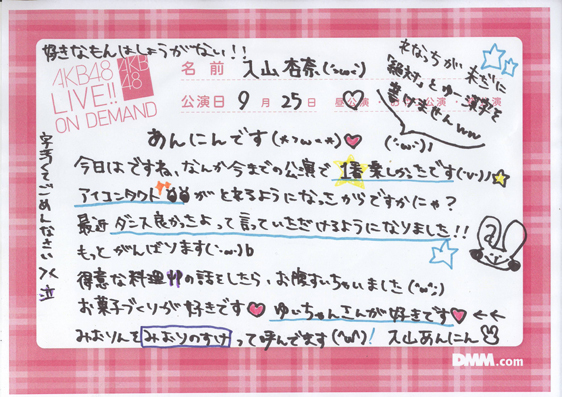 好きなもんはしょうがない!!
AKB48
LIVE!!
ON DEMAND
AKB
48
名前 入山杏奈(´・ω・`)
公演日 9月25日 昼公演 公演
♡
なっちが未だに
「絶対」とゆー漢字を
書けませんww
(´・ω・))
あんにんです(*>ω<*)♥
今日はですね、なんか今までの公演で1番楽しかったです(´∪`))☆
アイコンタクトがとれるようになったからですかにゃ?
最近ダンス良かったよって言っていただけるようになりました!!
もっとがんばります(´・ω・)b
得意な料理の話をしたら、お腹すいちゃいました(´ω`;)
お菓子づくりが好きです♥ゆいちゃんさんが好きです♥←←
みおりんをみおりのすけって呼んでます(^ω^)! 入山あんにん
字きたなくてごめんなさい 泣
DMM.com